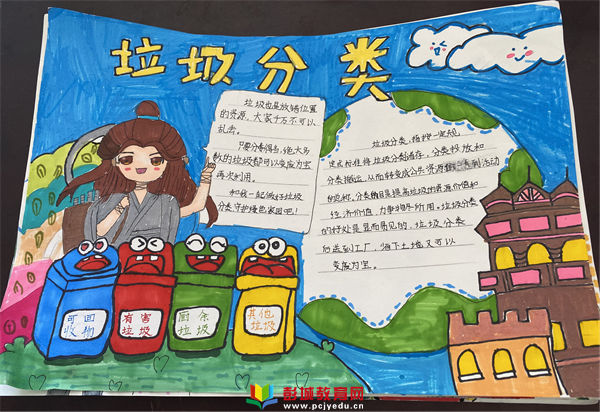 垃圾分类
垃圾也是放错位置
的资源,大家千万不可以
乱丢。
只要分类得当,绝大多
数的垃圾都可以变废为宝
再次利用。
和我一起做好垃圾
分类,守护绿色家园吧!
垃圾分类,指按一定规
定或标准将垃圾分类储存,分类投放和
分类搬运,从而转变成公共资源的一系列活动
的总称。分类的目的是提高垃圾的资源价值和
经济价值,力争物尽所用。垃圾分类
的好处是显而易见的。垃圾分类
后送到工厂,
又可以
变废为宝。
可回
收物
有害
垃圾
厨余
垃圾
其他
垃圾
彭城教育网
www.pcjyedu.cn